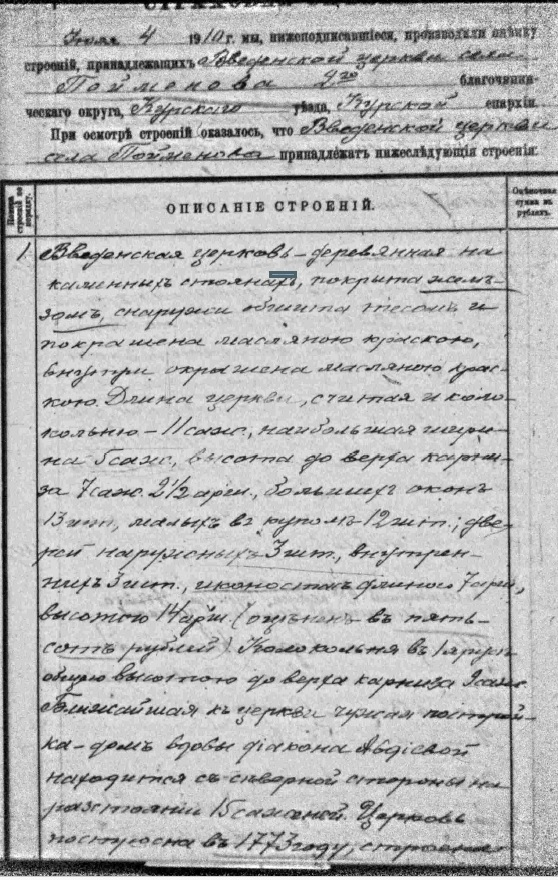 СТРАХОВАЯ
Іюля 4 1910 г. мы, нижеподписавшіеся, производили оцѣнку
строеній, принадлежащихъ Введенской церкви села
Пойменова 2го благочинни-
ческаго округа, Курскаго уѣзда, Курской епархіи.
При осмотрѣ строеній оказалось, что Введенской церкви
села Пойменова принадлежатъ нижеслѣдующія строенія:
ОПИСАНІЕ СТРОЕНІЙ.
Оцѣночная сумма въ рубляхъ.
1. Введенская церковь – деревянная на
каменныхъ стоянахъ, покрыта желѣ-
зомъ, снаружи обшита тесомъ и
покрашена масляною краскою,
внутри окрашена масляною крас-
кою. Длина церкви, считая и коло-
кольню – 11 саж., наибольшая шири-
на 5 саж., высота до верха карни-
за 7 саж. 2½ арш., большихъ оконъ
13 шт., малыхъ въ куполѣ 12 шт.; две-
рей наружныхъ 3 шт., внутрен-
нихъ 3 шт., иконостасъ длиною 7 арш.,
высотою 14 арш. (оцѣненъ въ пять-
сотъ рублей). Колокольня въ 1 ярусъ
общею высотою до верха карниза 9 саж.
Ближайшая къ церкви чужая построй-
ка – домъ вдовы діакона
находится съ сѣверной стороны на
разстояніи 15 саженей. Церковь
построена въ 1773 году, строенія